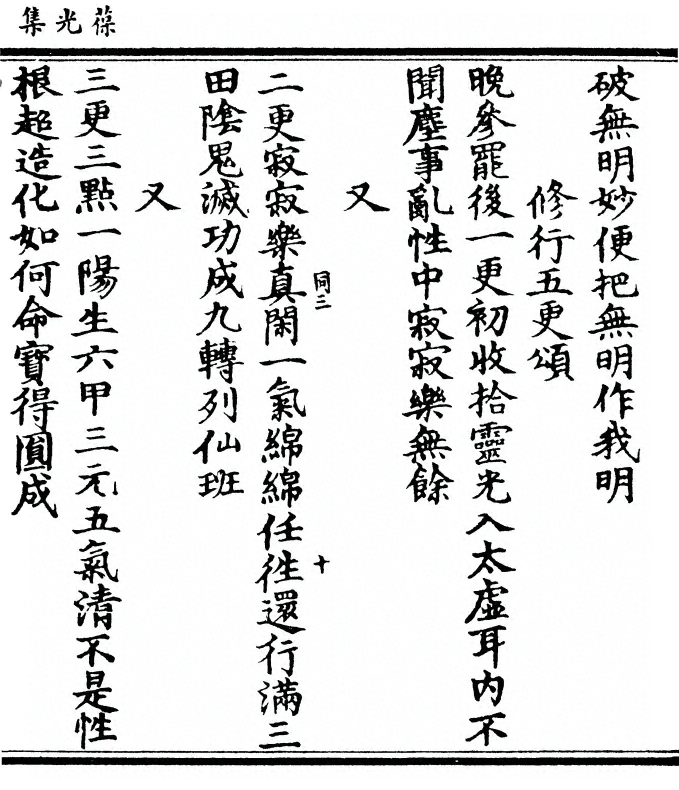 葆光集
破無明妙便把無明作我明
修行五更頌
晚參罷後一更初收拾靈光入太虛耳內不
聞塵事亂性中寂寂樂無餘
又
二更寂寂樂真閑一氣綿綿任徃還行滿三
同三
十
田陰鬼滅功成九轉列仙班
又
三更三點一陽生六甲三元五氣清不是性
根超造化如何命寶得圓成